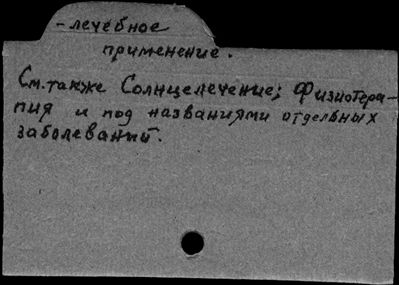 -лечебное
применение.
См. также Солнцелечение; Физиотера-
пия и под названиями отдельных
заболеваний.